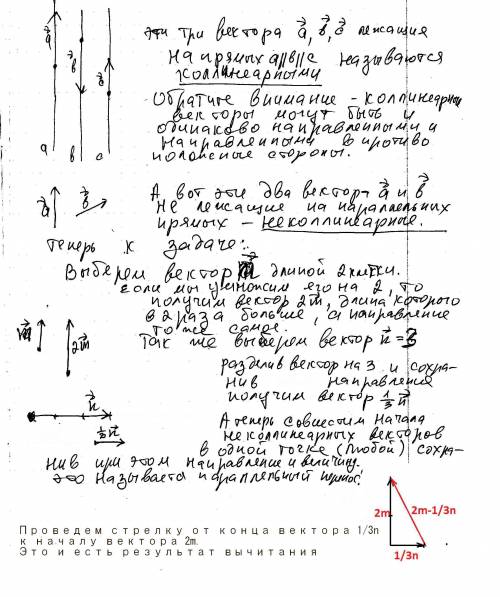 эти три вектора a, b, c лежащие
на прямых a||b||c называются
коллинеарными
Обратите внимание - коллинеарные
векторы могут быть и
одинаково направленными и
направленными в противо
положные стороны.
a b c
a b c
А вот эти два вектора a и b
не лежащие на параллельных
прямых - неколлинеарные.
a b
теперь к задаче:
Выберем вектор m длиной 2 клетки.
если мы умножим его на 2, то
получим вектор 2m, длина которого
в 2 раза больше, а направление
то же самое.
m 2m
Так же выберем вектор n = 3
разделив вектор на 3 и сохра-
нив направление
получим вектор 1/3 n
n
1/3 n
А теперь совместим начала
неколлинеарных векторов
в одной точке (любой) сохра-
нив при этом направление и величину.
это называется параллельный перенос
Проведем стрелку от конца вектора 1/3n
к началу вектора 2m.
Это и есть результат вычитания
2m
2m-1/3n
1/3n